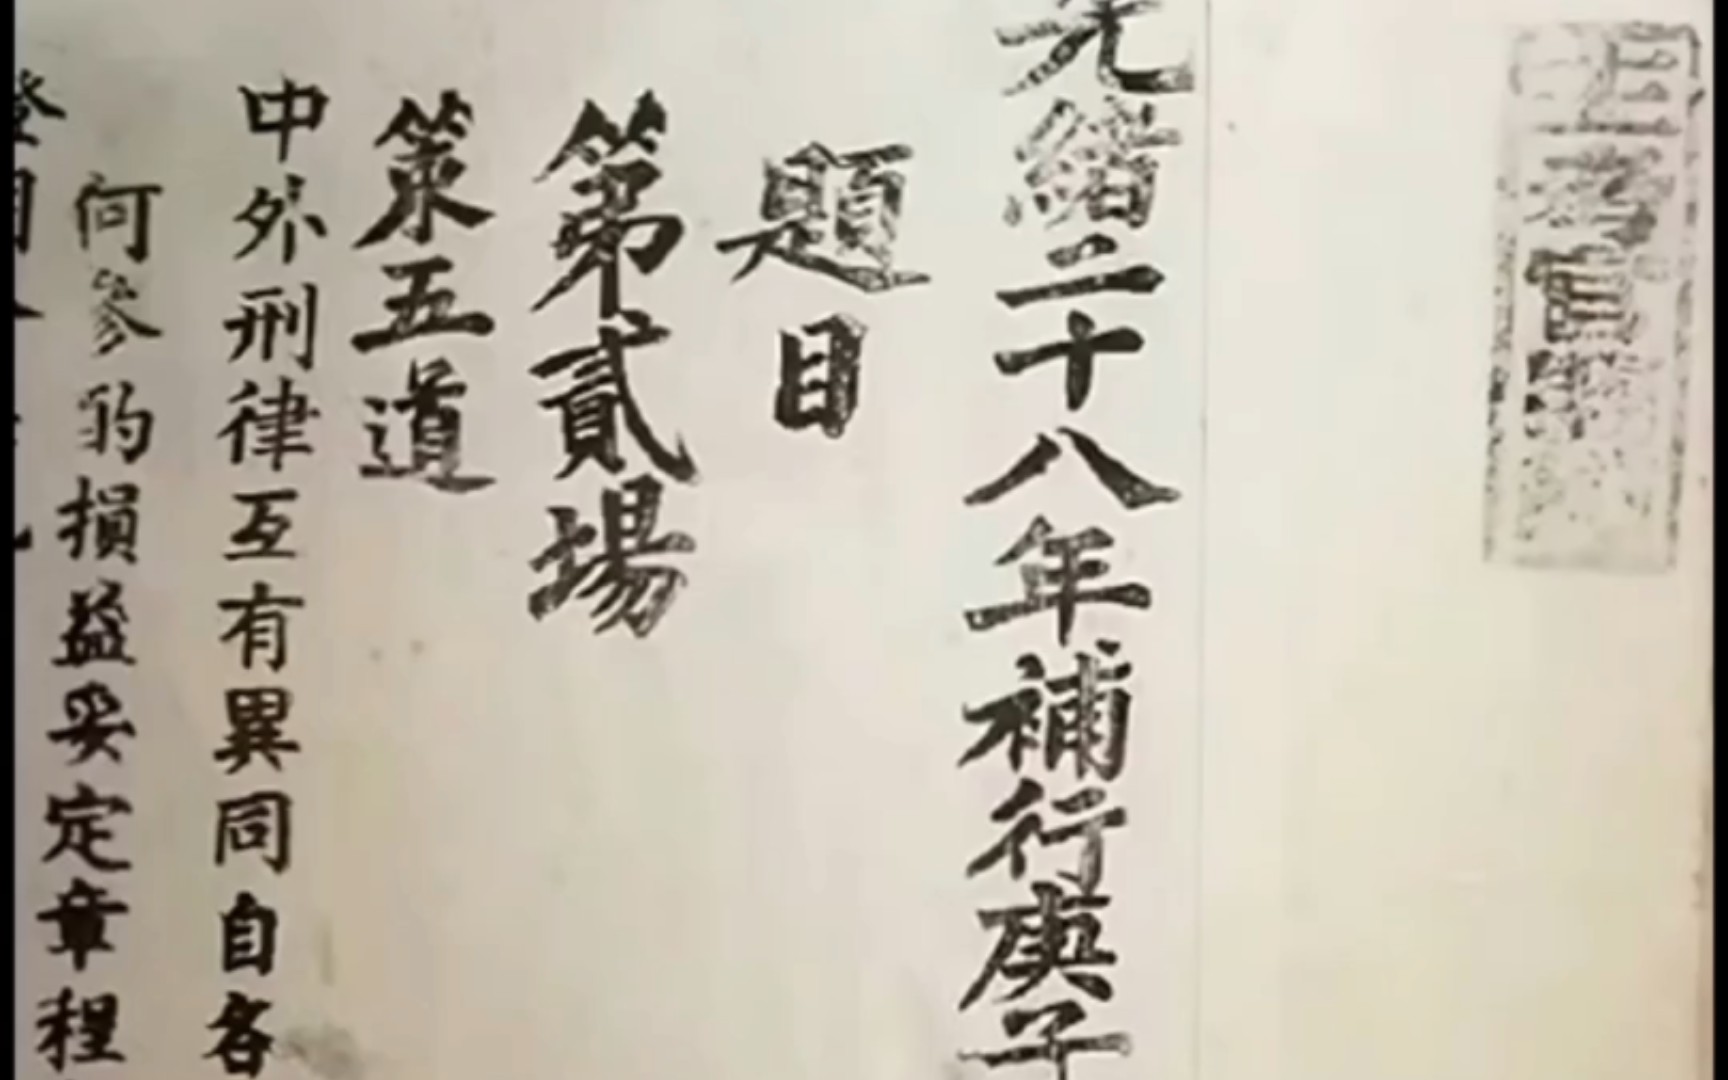 光緒二十八年補行庚子
題目
第貳場
策五道
中外刑律互有異同自各
何參酌損益妥定章程